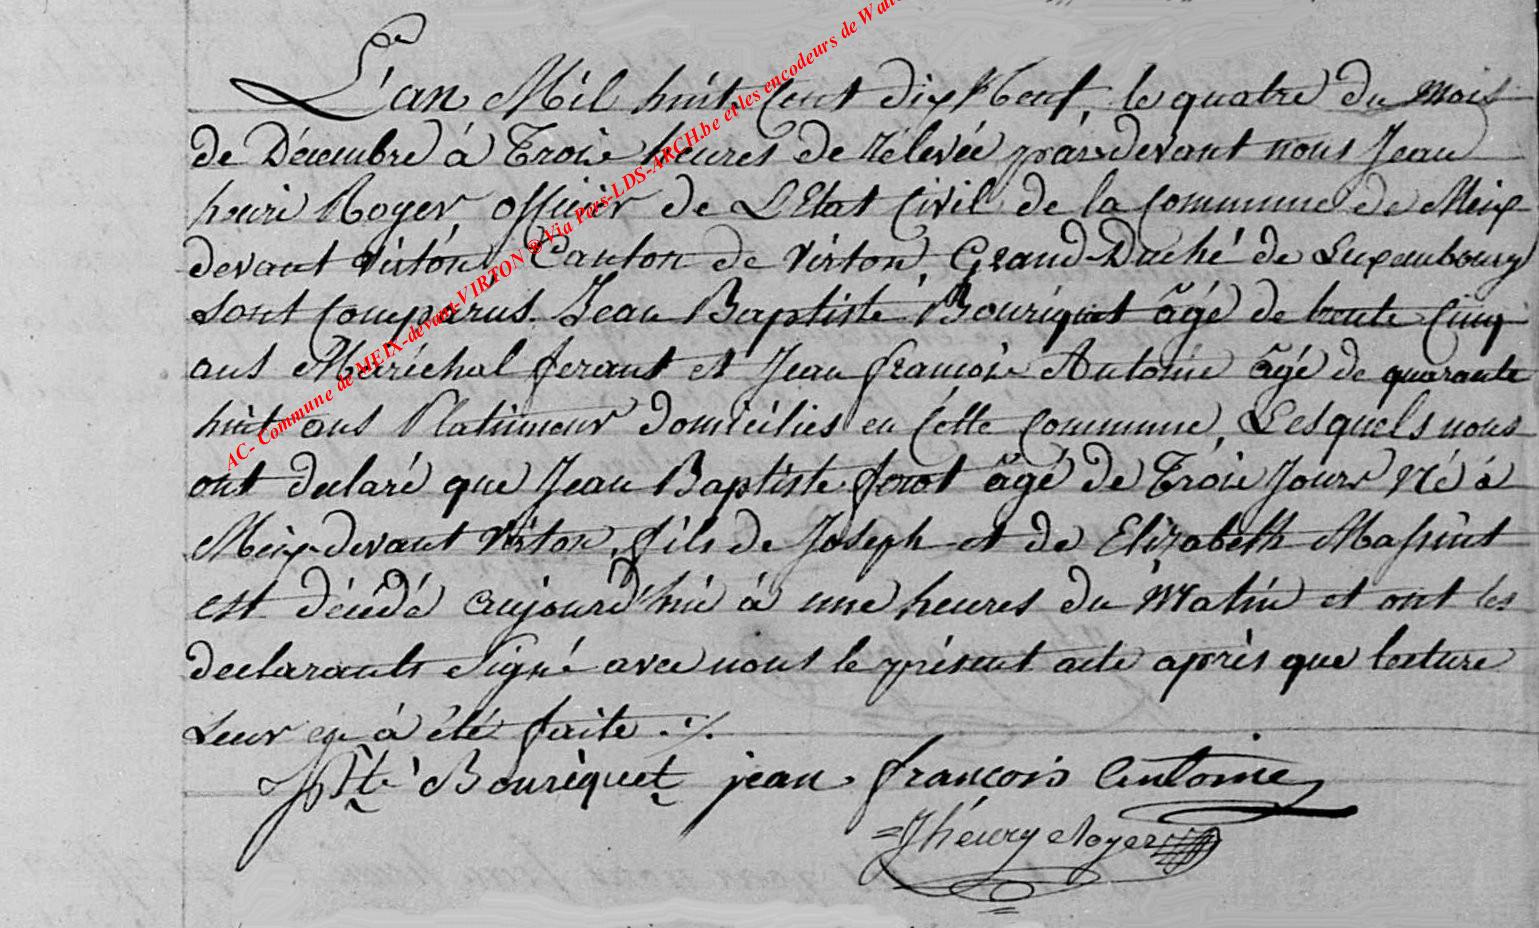 L'an Mil huit Cent dix Neuf, le quatre du Mois
de Décembre à Trois heures de rélevée par devant nous Jean
henri Royer officier de L'Etat Civil de la Commune de Meix
devant Virton, Canton de Virton, Grand-Duché de Luxembourg
sont Comparus Jean Baptiste Bouriquet âgé de trente Cinq
ans Maréchal ferant et Jean françois Antoine âgé de quarante
huit ans Platineur domiciliés en Cette Commune, Lesquels nous
ont declaré que Jean Baptiste âgé de Trois Jours Né à
Meix-devant Virton, fils de Joseph et de Elizabeth Massinet
est décédé aujourd'hui à une heures du Matin et ont les
declarants Signé avec nous le présent acte après que lecture
Leur en à été faite ./.
JBte Bouriquet jean françois Antoine
JHenry Royer
AC- Commune de MEIX-devant-VIRTON ® Via Pers-LDS-ARCH.be et les encodeurs de